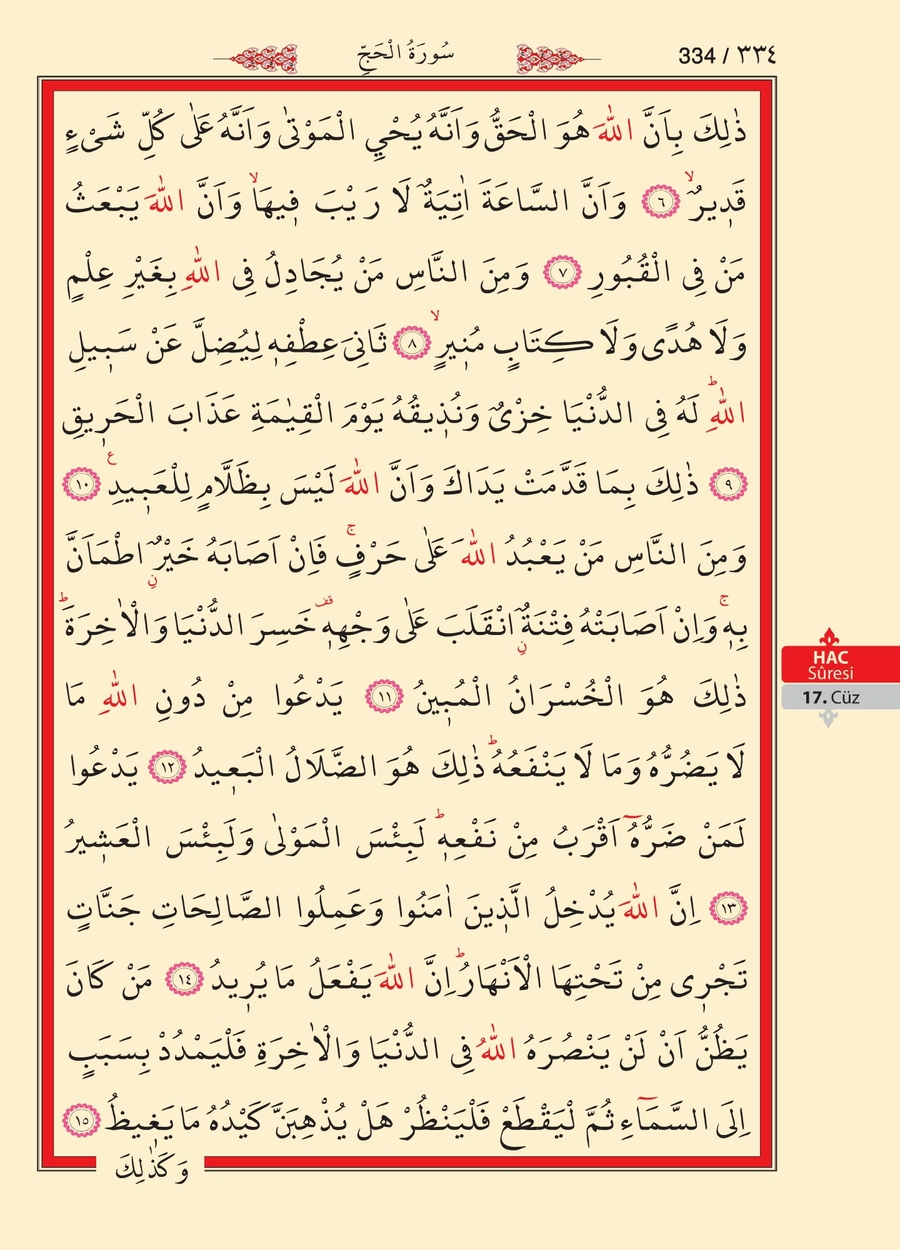 334 / ٣٣٤
سُورَةُ الْحَجِّ
ذٰلِكَ بِاَنَّ اللّٰهَ هُوَ الْحَقُّ وَاَنَّهُ يُحْيِي الْمَوْتٰى وَاَنَّهُ عَلٰى كُلِّ شَىْءٍ
قَدٖيرٌۙ ﴿٦﴾ وَاَنَّ السَّاعَةَ اٰتِيَةٌ لَا رَيْبَ فٖيهَاۙ وَاَنَّ اللّٰهَ يَبْعَثُ
مَنْ فِى الْقُبُورِ ﴿٧﴾ وَمِنَ النَّاسِ مَنْ يُجَادِلُ فِى اللّٰهِ بِغَيْرِ عِلْمٍ
وَلَا هُدًى وَلَا كِتَابٍ مُنٖيرٍۙ ﴿٨﴾ ثَانِىَ عِطْفِهٖ لِيُضِلَّ عَنْ سَبٖيلِ
اللّٰهِؕ لَهُ فِى الدُّنْيَا خِزْىٌ وَنُذٖيقُهُ يَوْمَ الْقِيٰمَةِ عَذَابَ الْحَرٖيقِ
﴿٩﴾ ذٰلِكَ بِمَا قَدَّمَتْ يَدَاكَ وَاَنَّ اللّٰهَ لَيْسَ بِظَلَّامٍ لِلْعَبٖيدِ ع ﴿١٠﴾
وَمِنَ النَّاسِ مَنْ يَعْبُدُ اللّٰهَ عَلٰى حَرْفٍۚ فَاِنْ اَصَابَهُ خَيْرٌ اطْمَاَنَّ
بِهٖۚ وَاِنْ اَصَابَتْهُ فِتْنَةٌ انْقَلَبَ عَلٰى وَجْهِهٖ قف خَسِرَ الدُّنْيَا وَالْاٰخِرَةَؕ
ذٰلِكَ هُوَ الْخُسْرَانُ الْمُبٖينُ ﴿١١﴾ يَدْعُوا مِنْ دُونِ اللّٰهِ مَا
لَا يَضُرُّهُ وَمَا لَا يَنْفَعُهُؕ ذٰلِكَ هُوَ الضَّلَالُ الْبَعٖيدُ ﴿١٢﴾ يَدْعُوا
لَمَنْ ضَرُّهُٓ اَقْرَبُ مِنْ نَفْعِهٖؕ لَبِئْسَ الْمَوْلٰى وَلَبِئْسَ الْعَشٖيرُ
﴿١٣﴾ اِنَّ اللّٰهَ يُدْخِلُ الَّذٖينَ اٰمَنُوا وَعَمِلُوا الصَّالِحَاتِ جَنَّاتٍ
تَجْرٖى مِنْ تَحْتِهَا الْاَنْهَارُؕ اِنَّ اللّٰهَ يَفْعَلُ مَا يُرٖيدُ ﴿١٤﴾ مَنْ كَانَ
يَظُنُّ اَنْ لَنْ يَنْصُرَهُ اللّٰهُ فِى الدُّنْيَا وَالْاٰخِرَةِ فَلْيَمْدُدْ بِسَبَبٍ
اِلَى السَّمَٓاءِ ثُمَّ لْيَقْطَعْ فَلْيَنْظُرْ هَلْ يُذْهِبَنَّ كَيْدُهُ مَا يَغٖيظُ ﴿١٥﴾
وَكَذٰلِكَ
HAC
Sûresi
17. Cüz